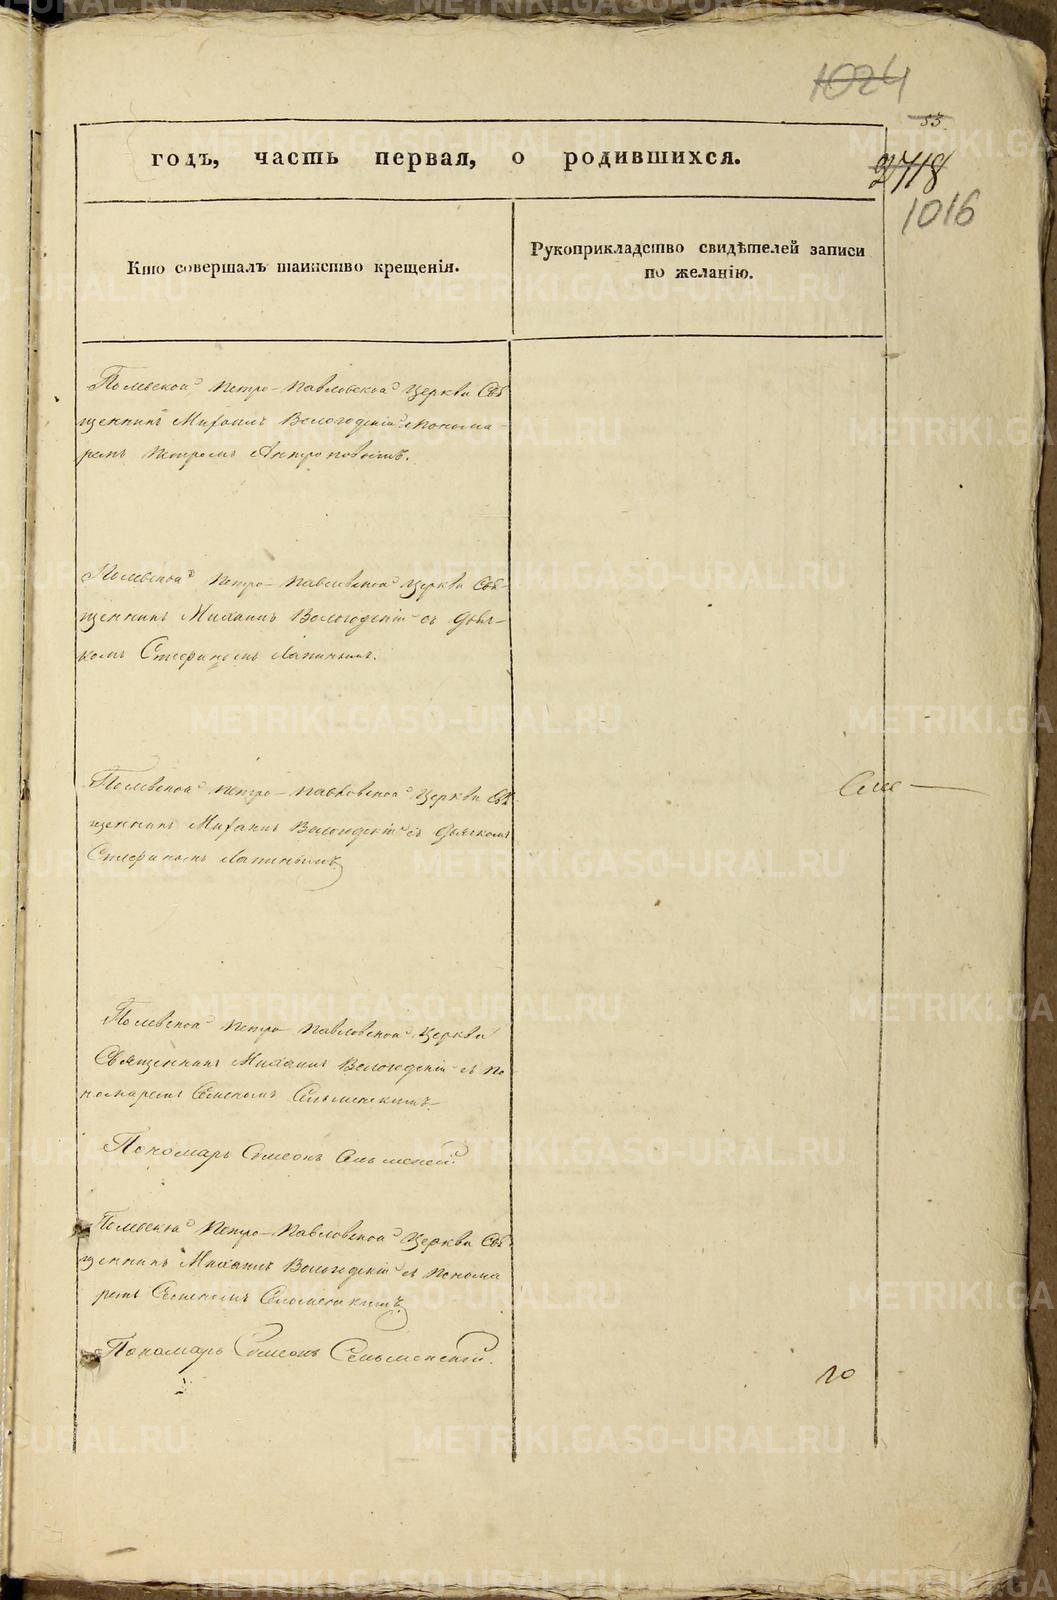 1024
53
годъ, часть первая, о родившихся.
2718
1016
Кто совершалъ таинство крещенія.
Рукоприкладство свидѣтелей записи
по желанію.
Полевской Петро-Павловской Церкви Свя
щенникъ Михаилъ Вологодскій с понома-
ремъ Петромъ
Полевской Петро-Павловской Церкви Свя-
щенникъ Михаилъ Вологодскій съ дьяч-
комъ Стефаномъ Лапинымъ.
Полевской Петро-Павловской Церкви Свя
щенникъ Михаилъ Вологодскій съ дьячкомъ
Стефаномъ Лапинымъ
Полевской Петро-Павловской Церкви
Священникъ Михаилъ Вологодскій съ по
номаремъ Семеномъ
Пономарь Симеонъ
Полевской Петро-Павловской Церкви Свя
щенникъ Михаилъ Вологодскій съ понома
ремъ Семеномъ
Пономарь Симеонъ
METRIKI.GASO-URAL.RU